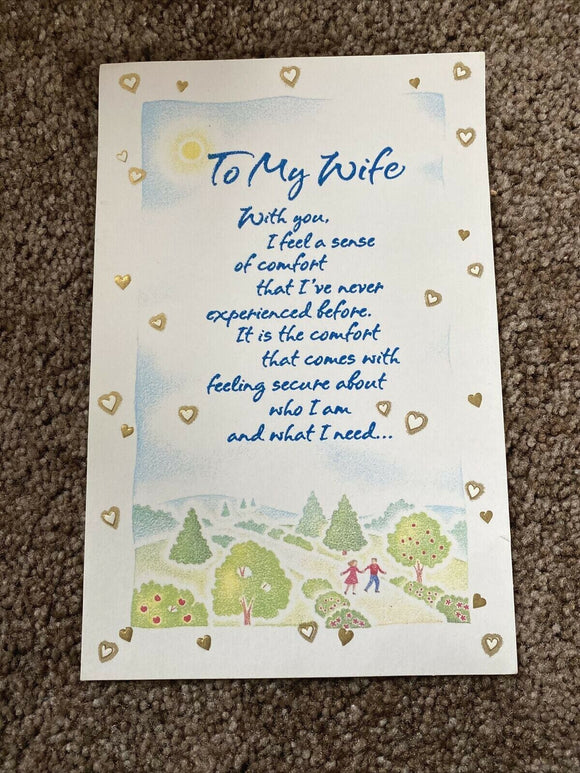 To My Wife
With you,
I feel a sense
of comfort
that I've never
experienced before.
It is the comfort
that comes with
feeling secure about
who I am
and what I need...